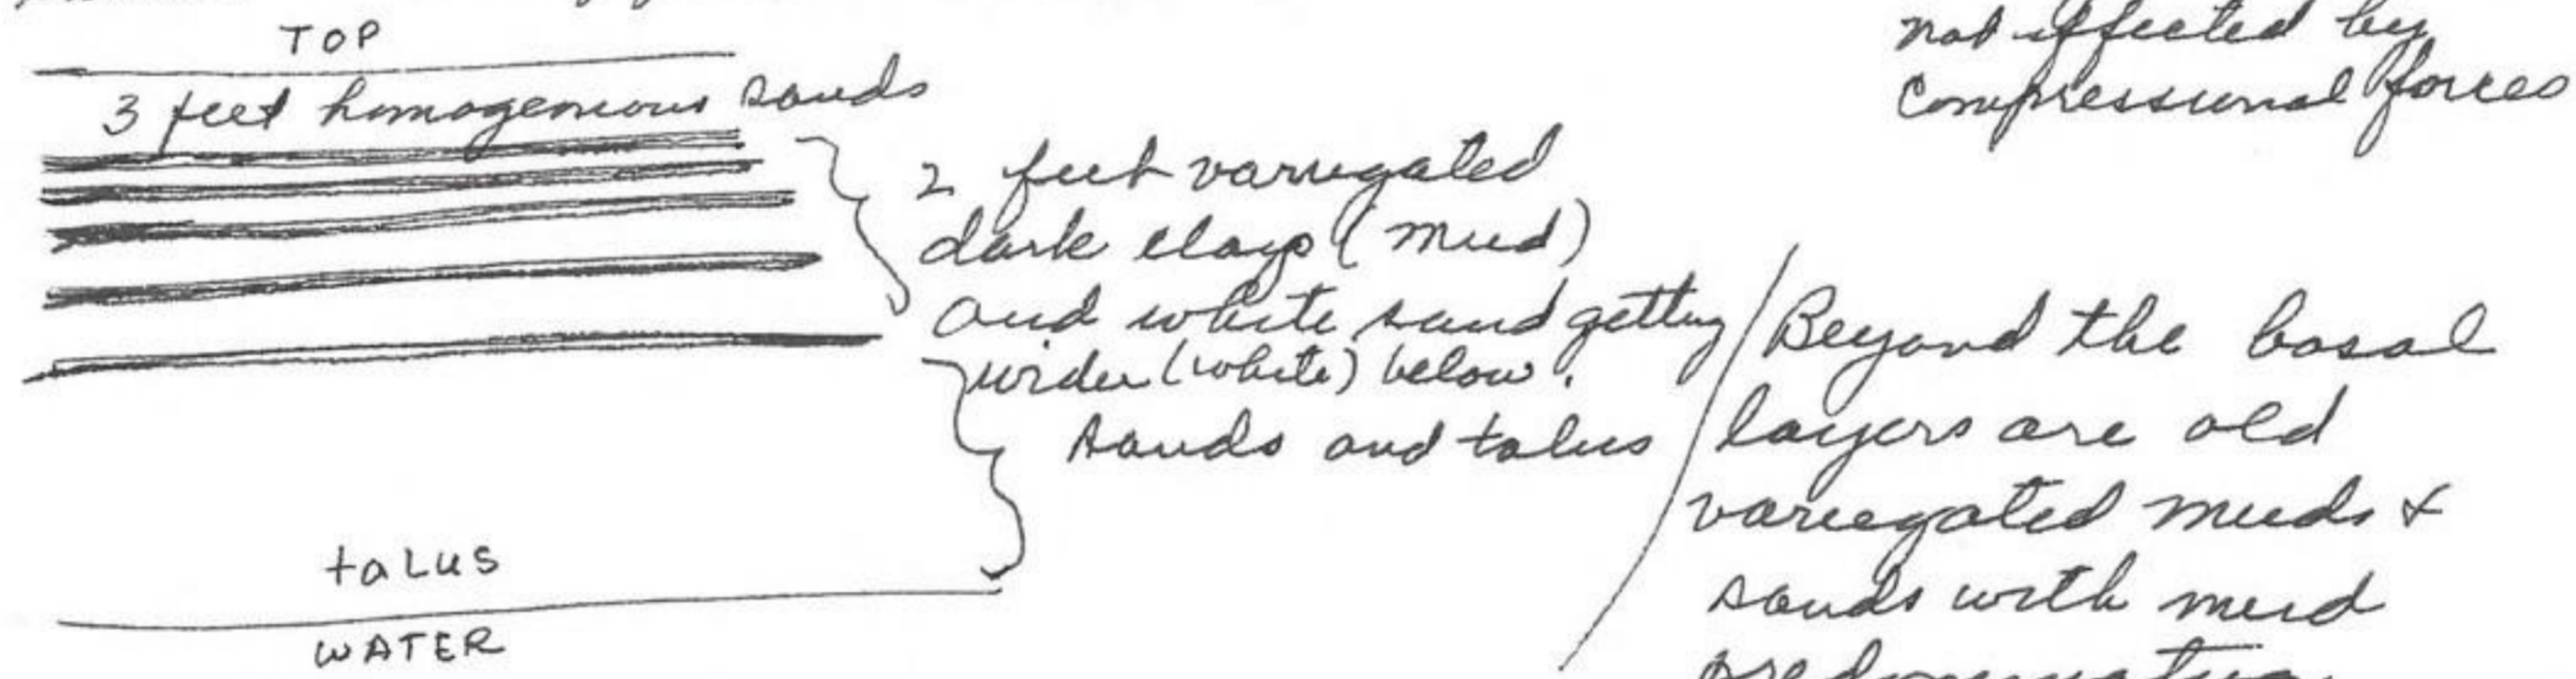 TOP
3 feet homogenious sands
2 feet varugated
dark clays (mud)
and white sand getting
wider (white) below.
sands and talus
talus
WATER
not effected by
compressional forces
Beyond the basal
layers are old
variegated muds &
sands with mud
predominating